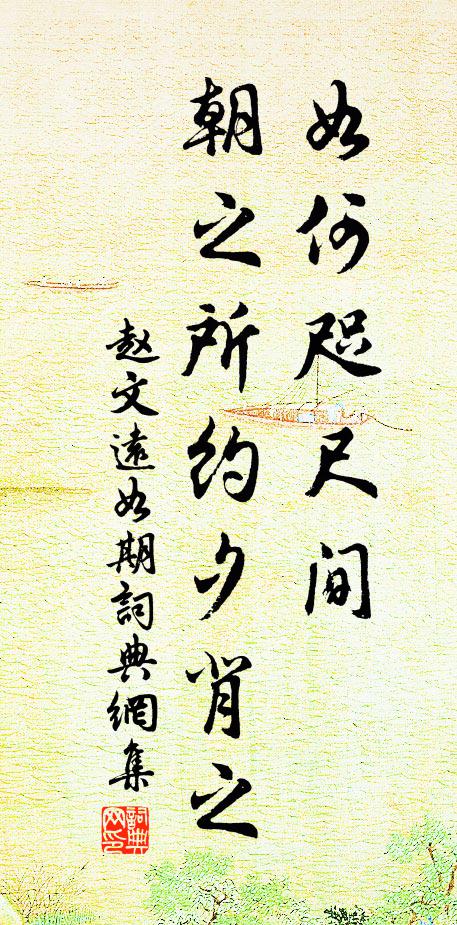 如何咫尺间
朝之所约夕背之
赵文远如期詞典網集
詞典
网印